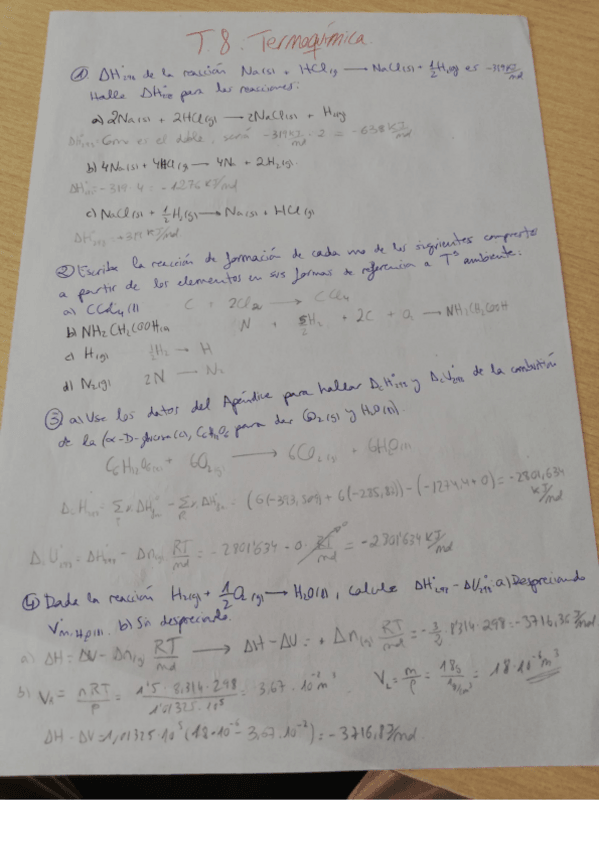 T.8. Termoquímica.
① ΔH°₂₉₈ de la reacción Na(s) + HCl(g) → NaCl(s) + 1/2 H₂(g) es -319 KJ/mol
Halle ΔH°₂₉₈ para las reacciones:
a) 2Na(s) + 2HCl(g) → 2NaCl(s) + H₂(g)
ΔH°₂₉₈ = Como es el doble, será -319 KJ/mol · 2 = -638 KJ/mol
b) 4Na(s) + 4HCl(g) → 4Na + 2H₂(g).
ΔH° = -319 · 4 = -1276 KJ/mol
c) NaCl(s) + 1/2 H₂(g) → Na(s) + HCl(g)
ΔH°₂₉₈ = +319 KJ/mol
② Escribe la reacción de formación de cada uno de los siguientes compuestos
a partir de los elementos en sus formas de referencia a Tª ambiente:
a) CCl₄(l) C + 2Cl₂ → CCl₄
b) NH₂CH₂COOH(s) N + 5/2 H₂ + 2C + O₂ → NH₂CH₂COOH
c) H(g) 1/2 H₂ → H
d) N₂(g) 2N → N₂
③ a) Use los datos del Apéndice para hallar ΔcH°₂₉₈ y ΔcU°₂₉₈ de la combustión
de la (α-D-glucosa(s), C₆H₁₂O₆ para dar CO₂(g) y H₂O(l).
C₆H₁₂O₆(s) + 6O₂(g) → 6CO₂(g) + 6H₂O(l)
ΔcH°₂₉₈ = Σ ν ΔH° - Σ ν ΔH° = (6(-393,509) + 6(-285,83)) - (-1274,4 + 0) = -2801,634 KJ/mol
ΔcU°₂₉₈ = ΔH°₂₉₈ - Δn(g) RT/mol = -2801'634 - 0 · RT/mol = -2801'634 KJ/mol
④ Dada la reacción H₂(g) + 1/2 O₂(g) → H₂O(l), calcule ΔH°₂₉₈ - ΔU°₂₉₈ a) Despreciando
V°m,H₂O(l). b) Sin despreciarlo.
a) ΔH = ΔU - Δn(g) RT/mol → ΔH - ΔU = + Δn(g) RT/mol = -3/2 · 8'314 · 298 = -3716,36 J/mol
b) V₁ = nRT/P = 1'5 · 8,314 · 298 / 1'01325 · 10⁵ = 3,67 · 10⁻² m³ V₂ = m/ρ = 18g / 1g/m³ = 18 · 10⁻⁶ m³
ΔH - ΔU = 1,01325 · 10⁵ (18 · 10⁻⁶ - 3,67 · 10⁻²) = -3716,8 J/mol.